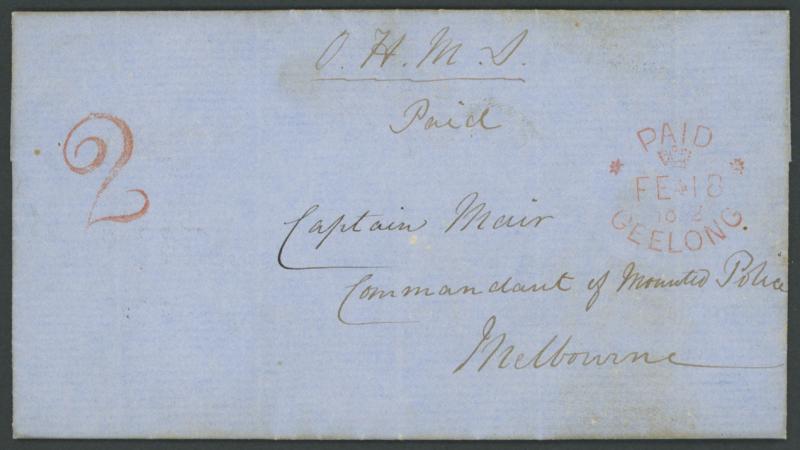 O. H. M. S.
Paid
2
PAID
FE 18
GEELONG
Captain Mair
Commandant of Mounted Police
Melbourne